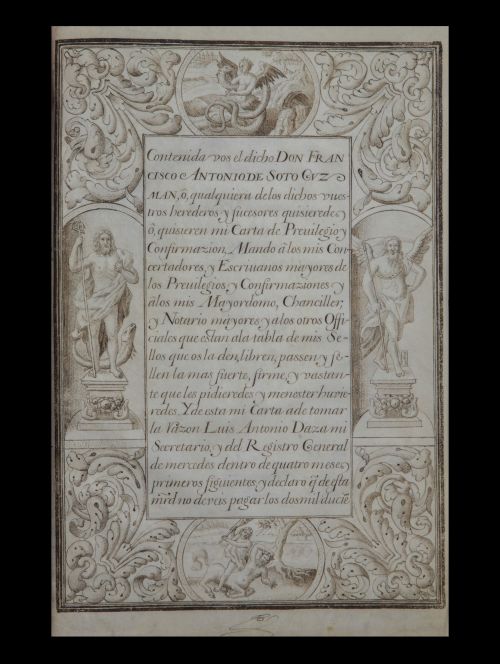 Contenida vos el dicho DON FRAN
CISCO ANTONIO DE SOTO GUZ
MAN, ò, qualquiera delos dichos vues
tros herederos y sucesores quisieredes
ò, quisieren mi Carta de Preuilegio y
Confirmazion, Mando â los mis Con
certadores, y Escriuanos mayores de
los Preuilegios y Confirmaziones y
â los mis Mayordomo, Chanciller,
y Notario mayores y alos otros Offi
ciales que estan ala tabla de mis Se
llos que os la den, libren, passen y se
llen la mas fuerte, firme, y vastan
te que les pidieredes y menester huvie
redes. Y de esta mi Carta a de tomar
la Razon Luis Antonio Daza mi
Secretario, y del Registro General
de mercedes dentro de quatro meses
primeros siguientes, y declaro q̃ de esta
mrd̃ no deveis pagar los dosmil ducẽ